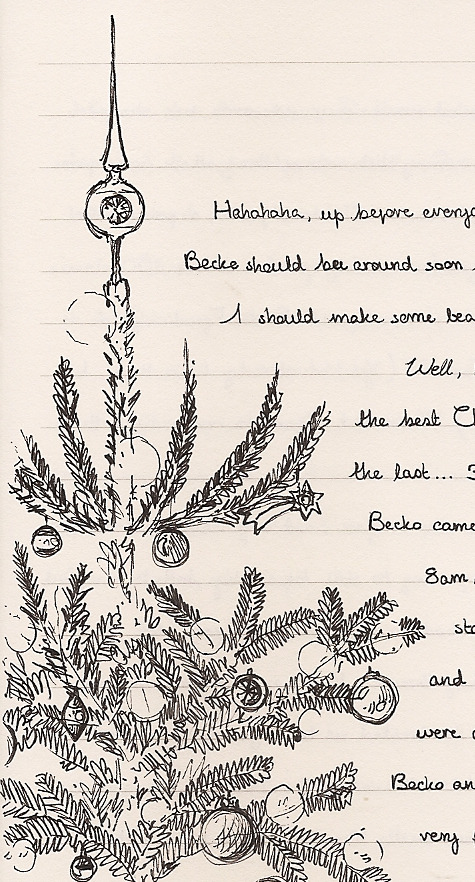 Hahahaha, up before everyo
Becko should be around soon
I should make some bea
Well,
the best C
the last... 3
Becko came
8am
sta
and
were
Becko an
very